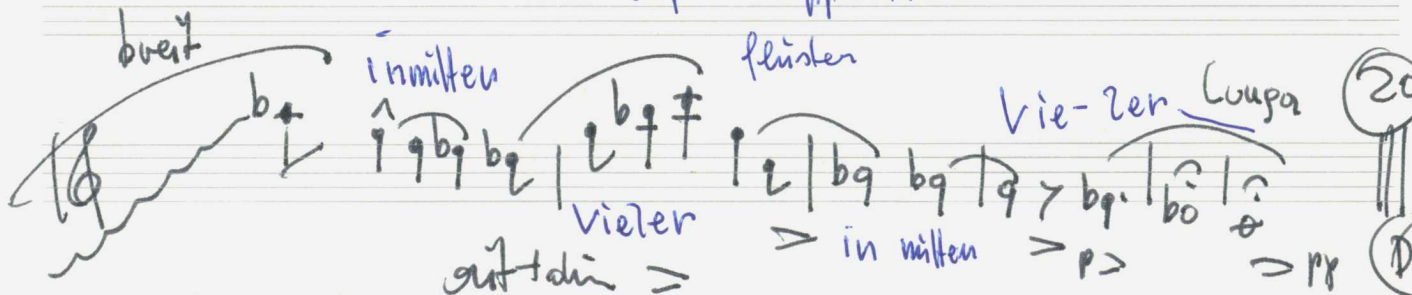 breit
inmitten flüstern
Vie-ler Longa
vieler
in mitten
p pp